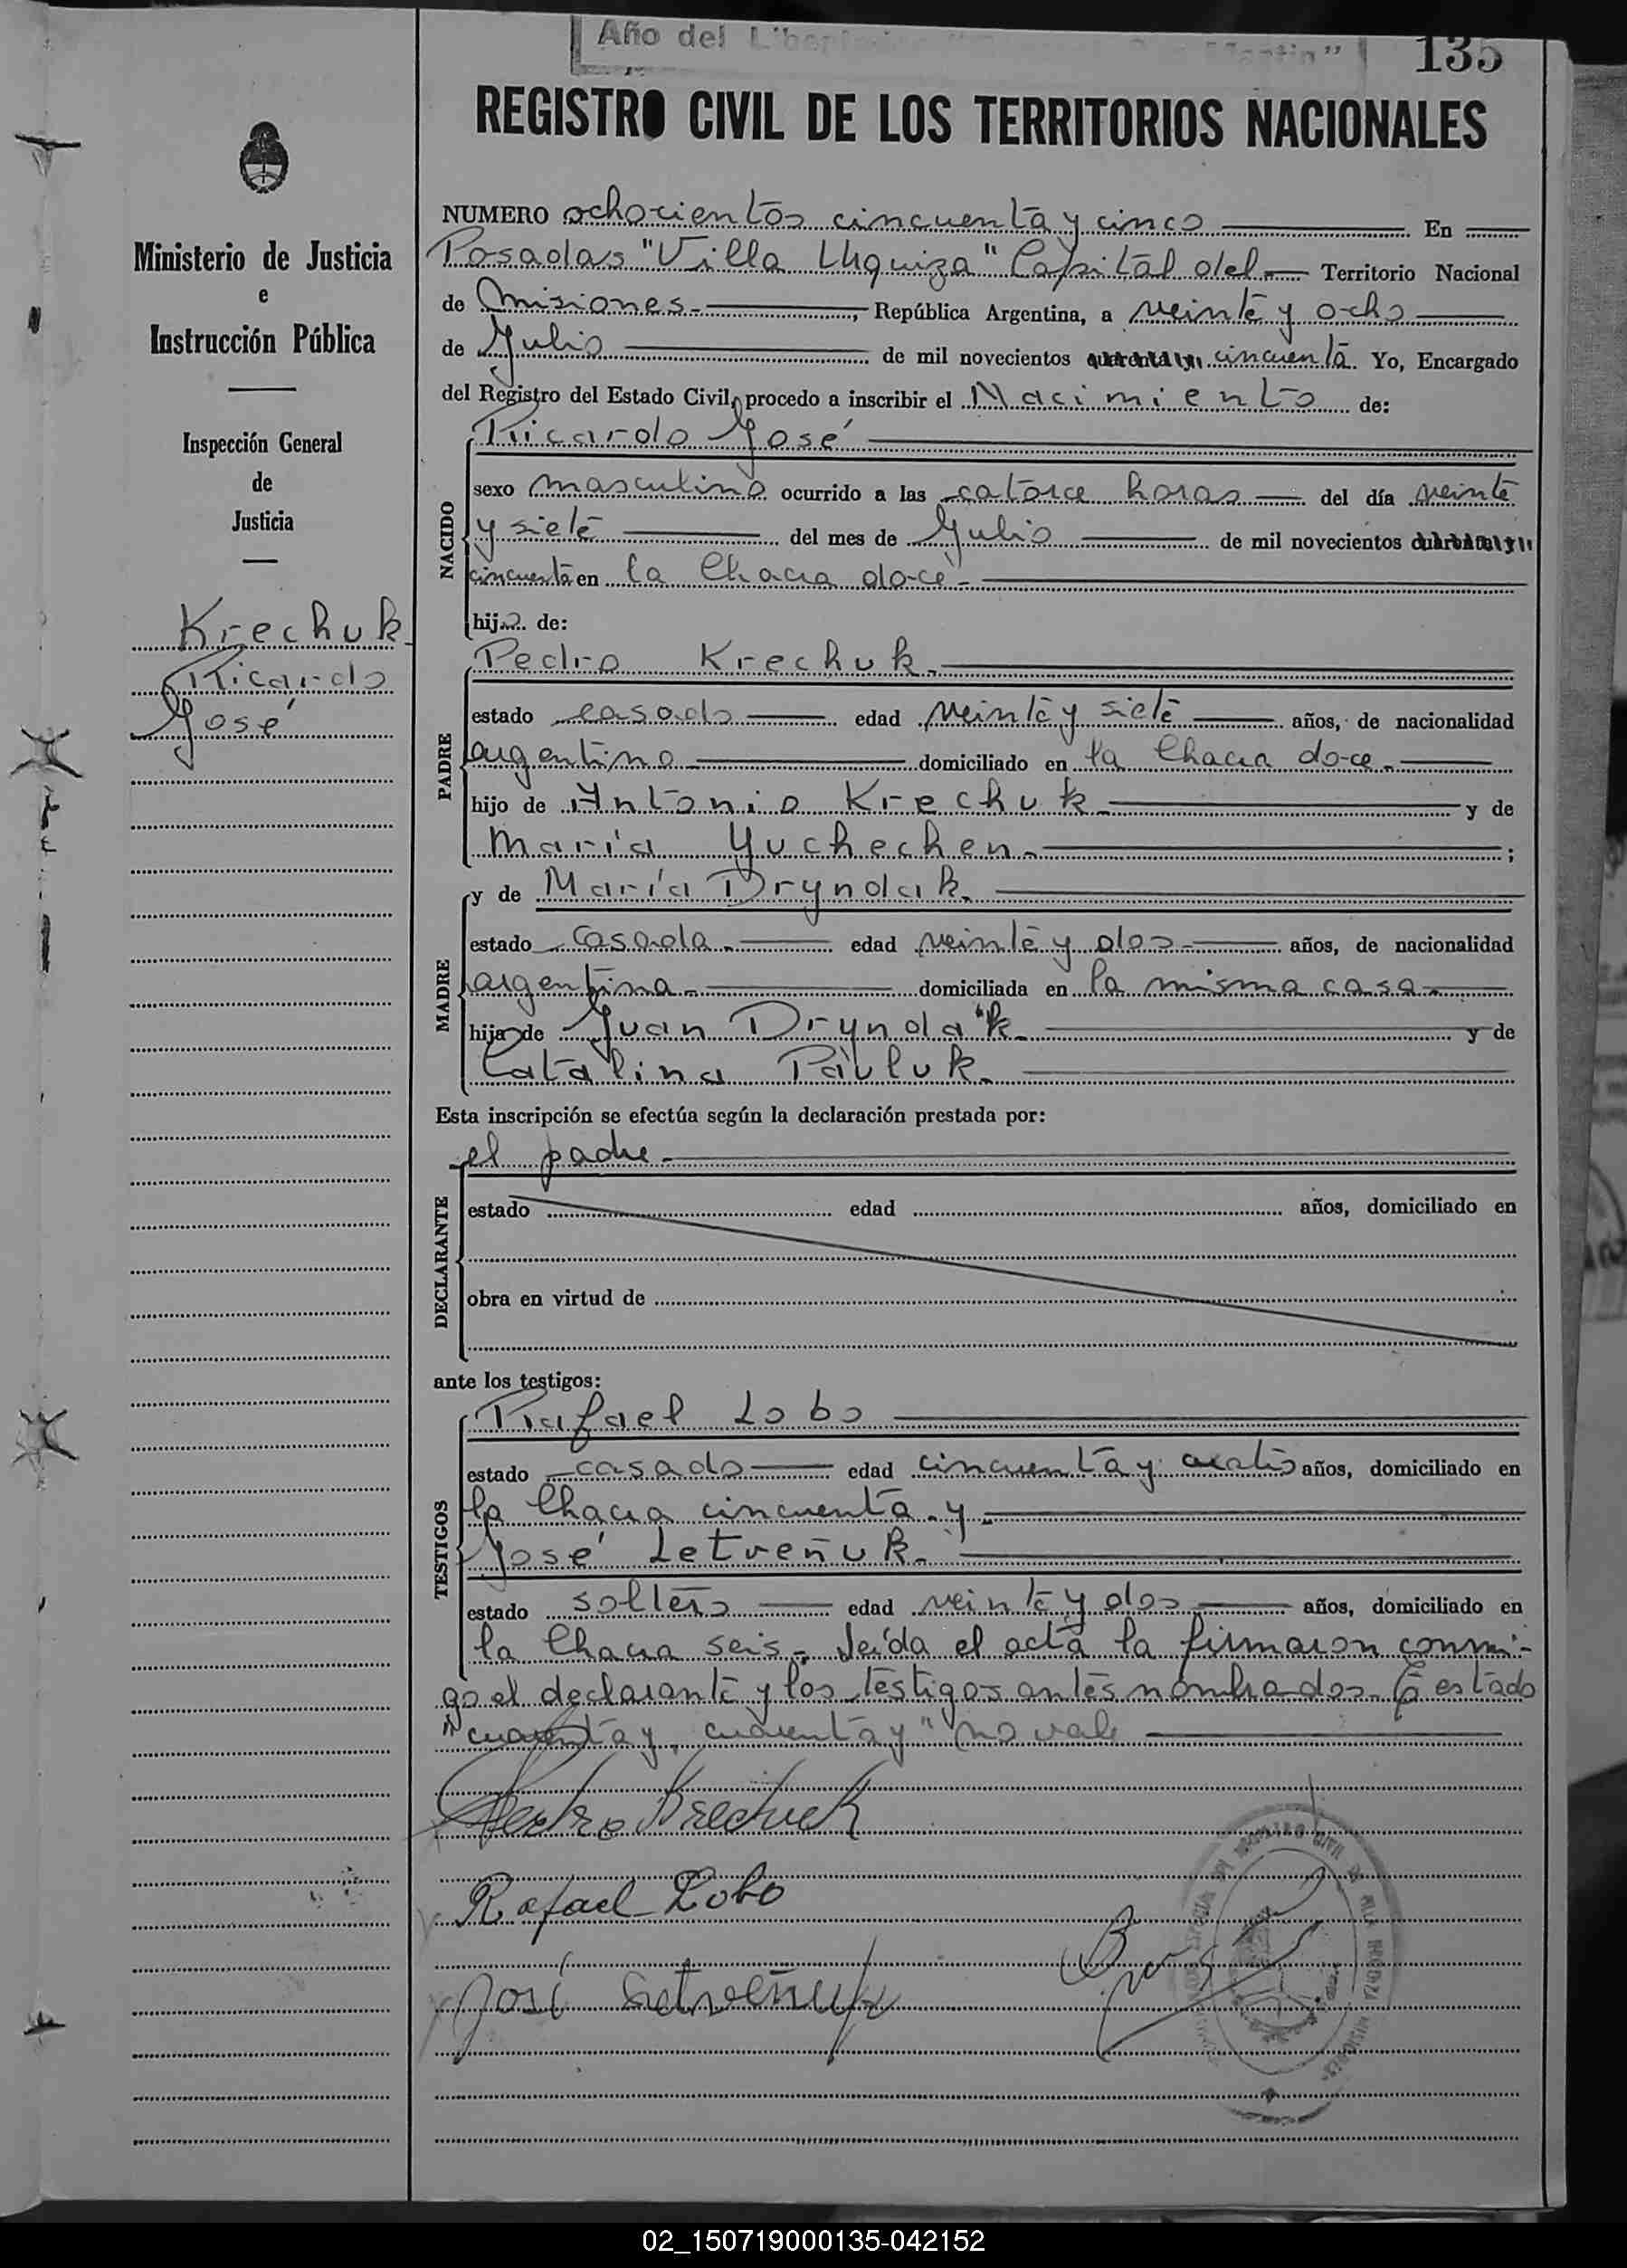 Año del Libertador
135
REGISTRO CIVIL DE LOS TERRITORIOS NACIONALES
Ministerio de Justicia
e
Instrucción Pública
Inspección General
de
Justicia
Krechuk
Ricardo
José
NUMERO ochocientos cincuenta y cinco En
Posadas "Villa Urquiza" Capital del Territorio Nacional
de Misiones.- , República Argentina, a veinte y ocho
de Julio de mil novecientos cuarenta y cincuenta. Yo, Encargado
del Registro del Estado Civil, procedo a inscribir el Nacimiento de:
Ricardo José
NACIDO
sexo masculino ocurrido a las catorce horas del día veinte
y siete del mes de Julio de mil novecientos cuarenta y
cincuenta en la Chacra doce.-
hijo de:
Pedro Krechuk.
PADRE
estado casado edad veinte y siete años, de nacionalidad
argentino domiciliado en la Chacra doce.-
hijo de Antonio Krechuk y de
María Yuchechen.- ;
y de María Dryndak.
MADRE
estado casada.- edad veinte y dos.- años, de nacionalidad
argentina.- domiciliada en la misma casa.-
hija de Juan Dryndak. y de
Catalina Pavluk.
Esta inscripción se efectúa según la declaración prestada por:
el padre.-
DECLARANTE
estado edad años, domiciliado en
obra en virtud de
ante los testigos:
Rafael Lobo
TESTIGOS
estado casado edad cincuenta y cuatro años, domiciliado en
la Chacra cincuenta.y.
José Letveñuk.
estado soltero edad veinte y dos años, domiciliado en
la Chacra seis.- Leída el acta la firmaron conmi-
go el declarante y los testigos antes nombrados. E estado
"cuarenta y, cuarenta y" no vale
Pedro Krechuk
Rafael Lobo
José Letveñuk
02_150719000135-042152